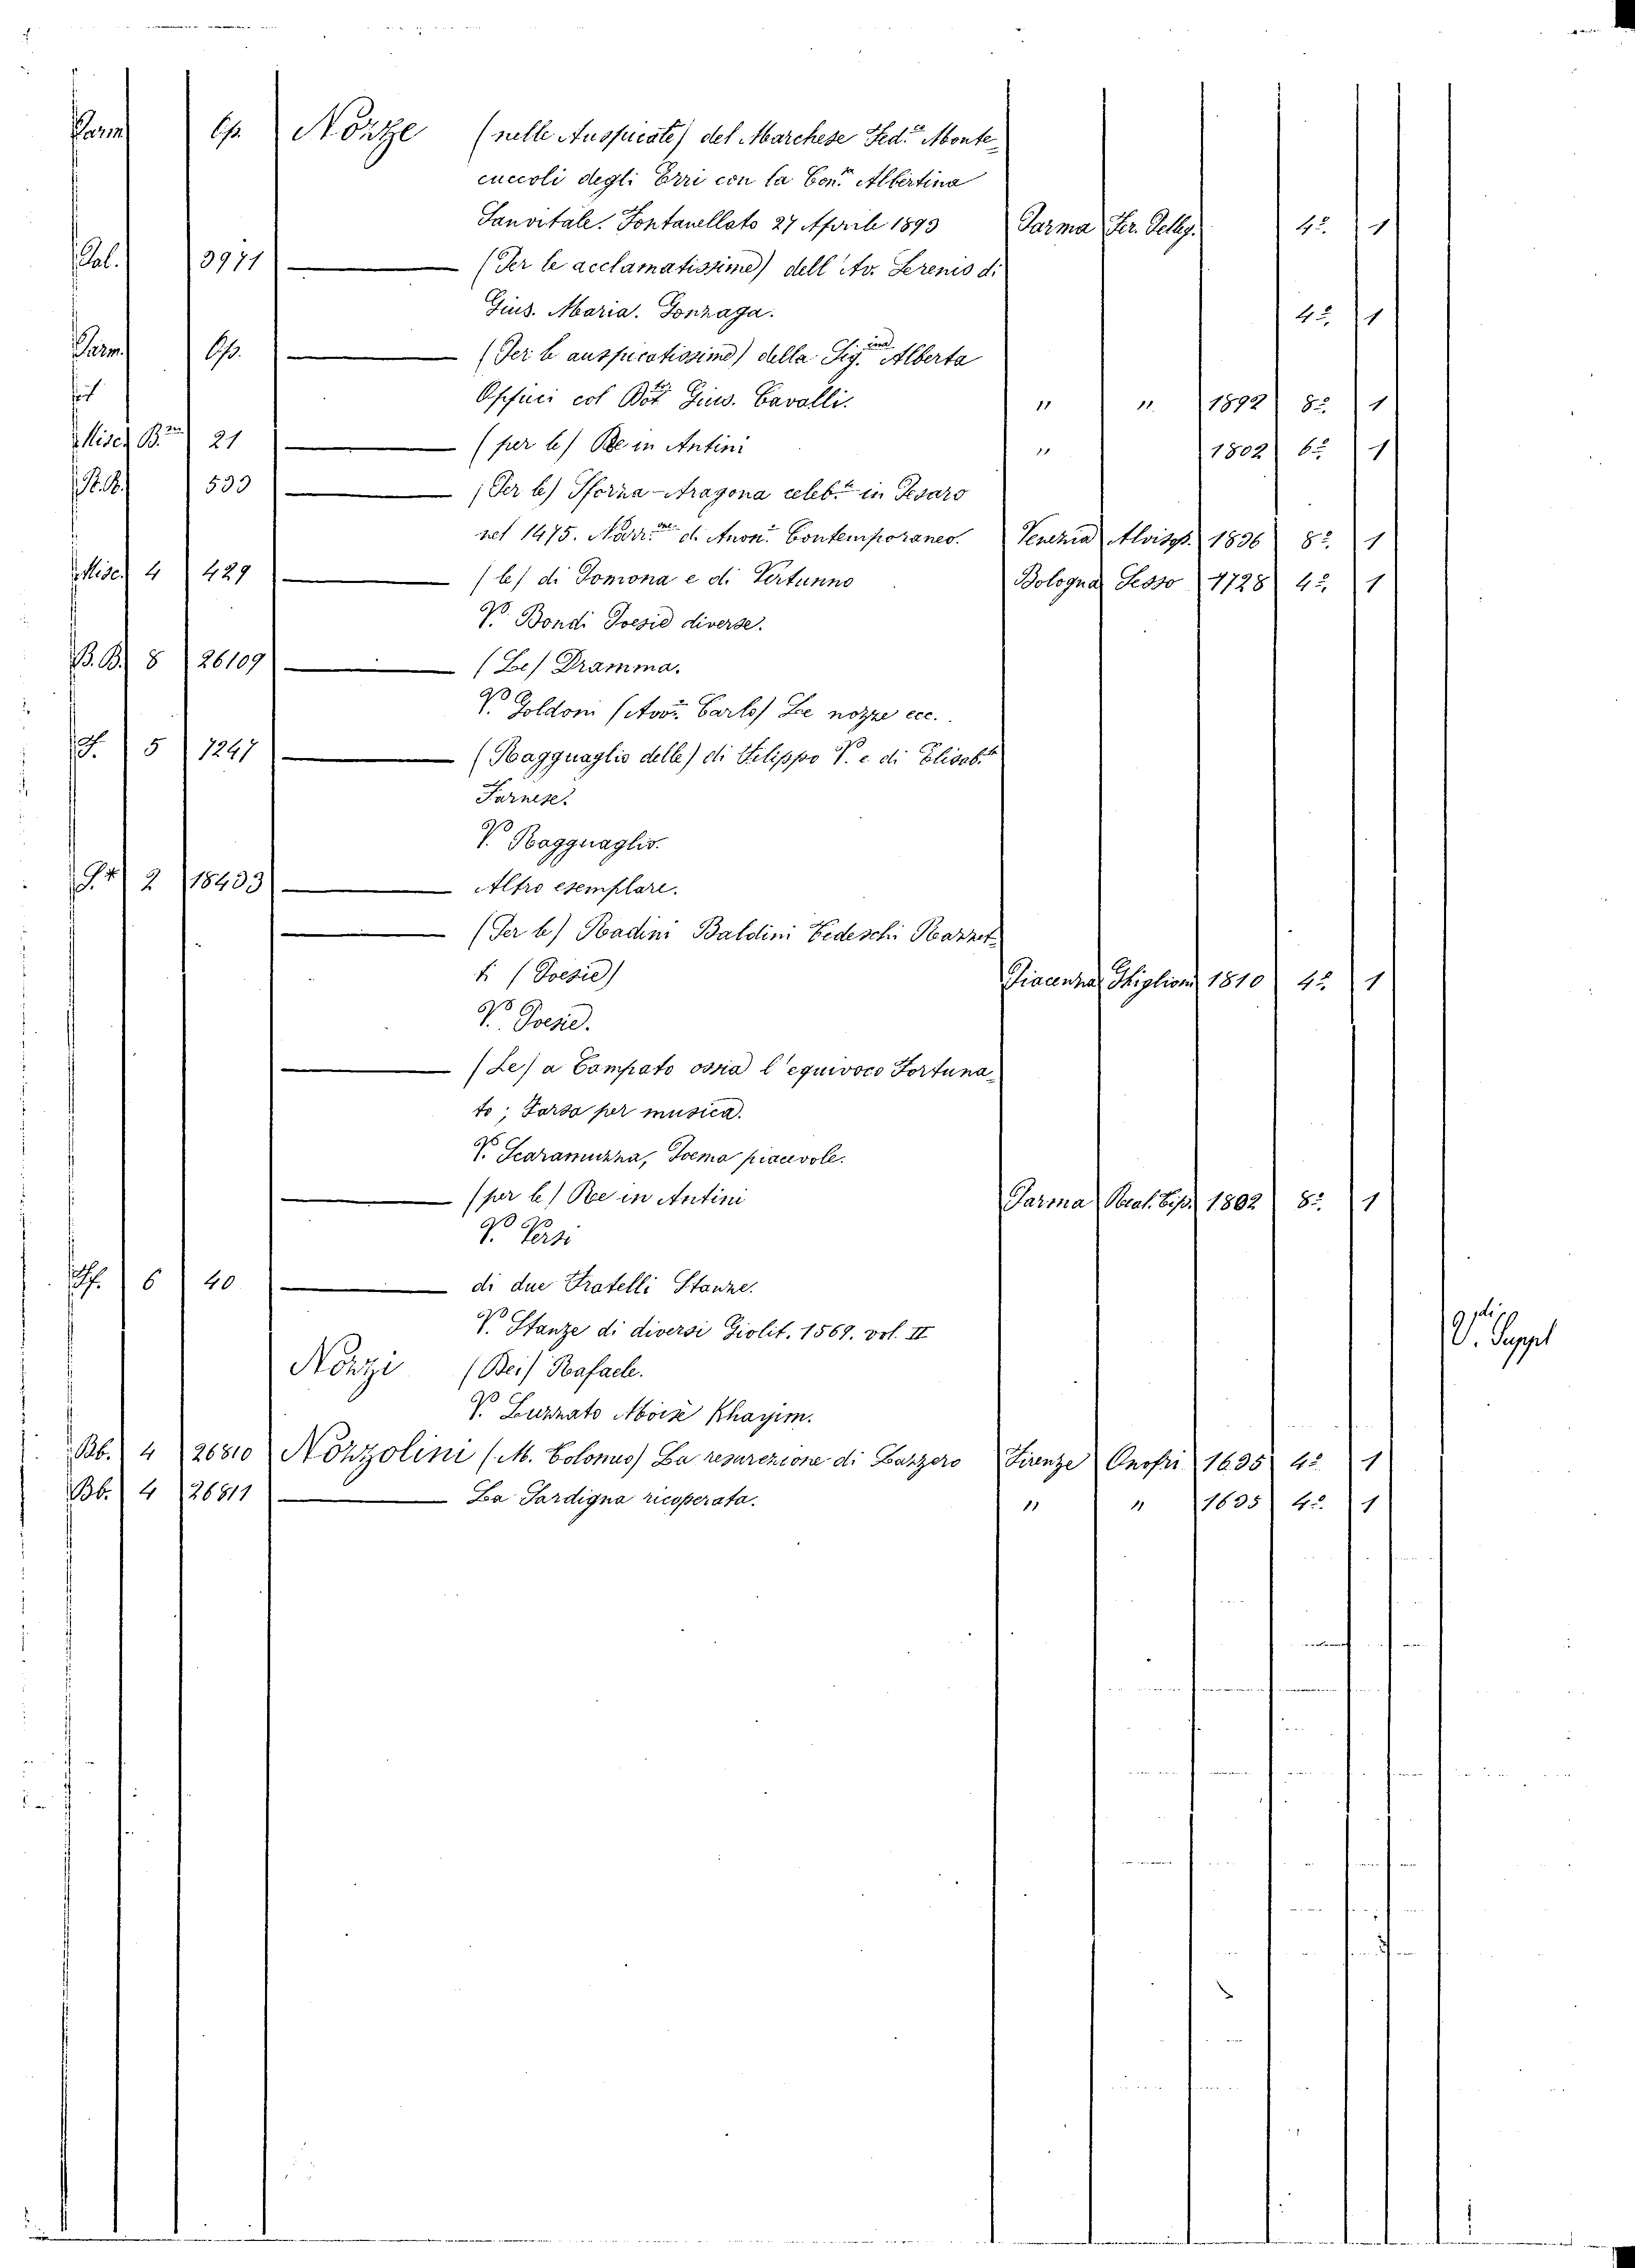 Parm Op. Nozze (nelle Auspicate) del Marchese Fed.co Monte-
cuccoli degli Erri con la Con.a Albertina
Sanvitale. Fontanellato 27 Aprile 1893 Parma Fer. Pelleg. 4.° 1
Pal. 3971 — (Per le acclamatissime) dell'Av. Serenis di
Gius. Maria. Gonzaga. 4.° 1
Parm. Op. — (Per le auspicatissime) della Sig.ina Alberta
Oppici col Dot.r Gius. Cavalli. " " 1892 8.° 1
Misc. B. 21 — (per le) Re in Antini " 1802 6.° 1
533 — (Per le) Sforza-Aragona celeb.te in Pesaro
nel 1475. Narr.one di Anon.o Contemporaneo. Venezia Alvisop. 1836 8.° 1
Misc. 4 429 — (le) di Pomona e di Vertunno Bologna Sesso 1728 4.° 1
V. Bondi Poesie diverse.
B.B. 8 26109 — (Le) Dramma.
V. Goldoni (Avv. Carlo) Le nozze ecc.
5 1247 — (Ragguaglio delle) di Filippo V. e di Elisab.ta
Farnese.
V. Ragguaglio.
2 18433 — Altro esemplare.
— (Per le) Radini Baldini Tedeschi Razzet-
ti (Poesie) Piacenza Ghiglioni 1810 4.° 1
V. Poesie.
— (Le) a Campato ossia l'equivoco Fortuna-
to; Farsa per musica.
V. Scaramuzza, Poema piacevole.
— (per le) Re in Antini Parma Real. Tip. 1802 8.° 1
V. Versi
6 40 — di due Fratelli Stanze.
V. Stanze di diversi Giolit. 1569. vol. II
V. Suppl
Nozzi (Bei) Rafaele.
V. Luzzato Moisè Khayim.
Bb. 4 26810 Nozzolini (M. Tolomuo) La resurezione di Lazzero Firenze Onofri 1635 4.° 1
Bb. 4 26811 — La Sardigna ricoperata. " " 1635 4.° 1